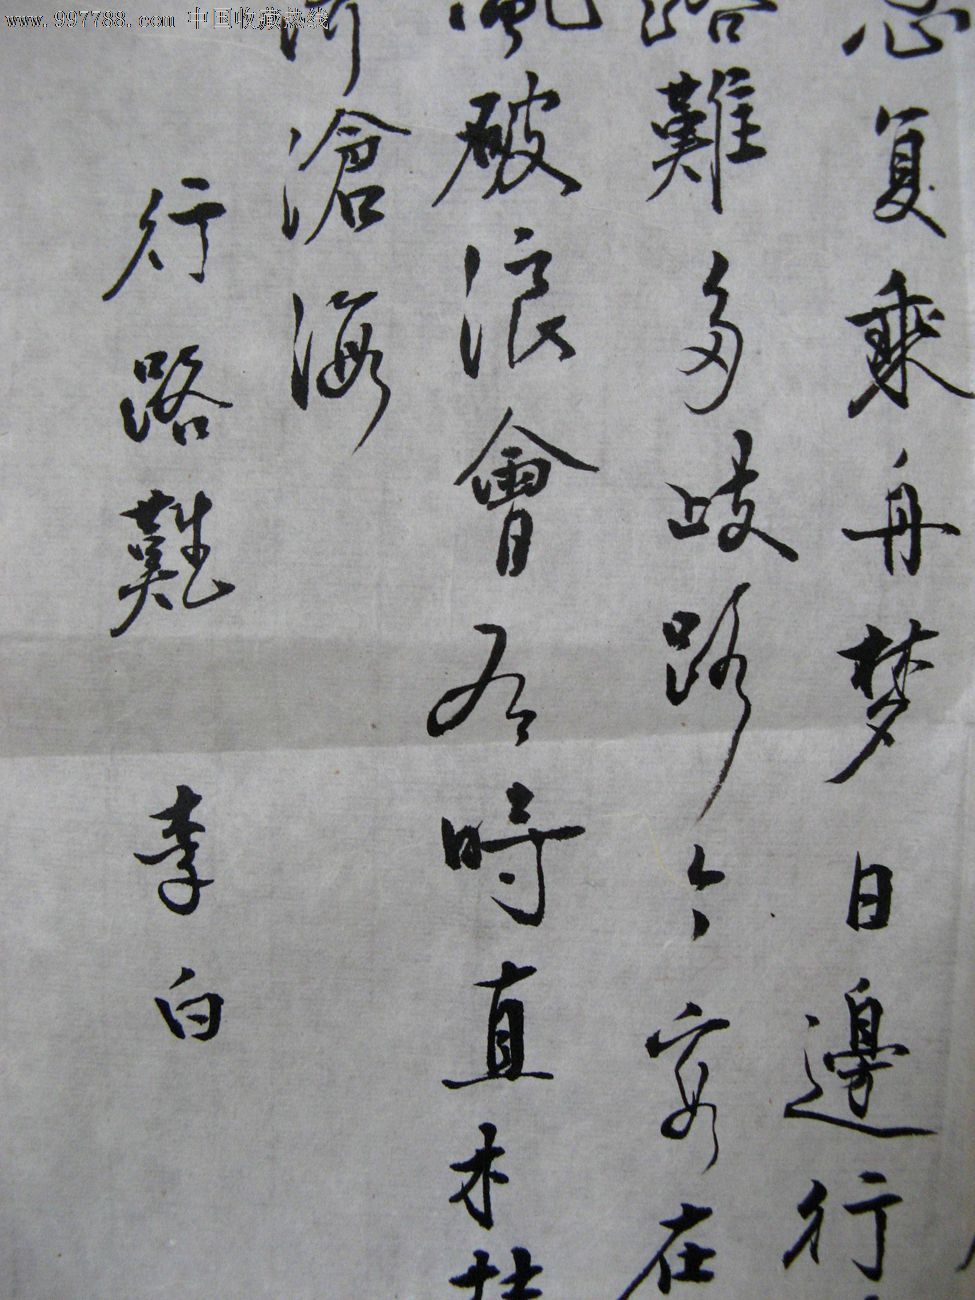 www.997788.com 中国收藏热线
忽复乘舟梦日邊行
路難多歧路今安在
風破浪會有時直
滄海
行路難 李白